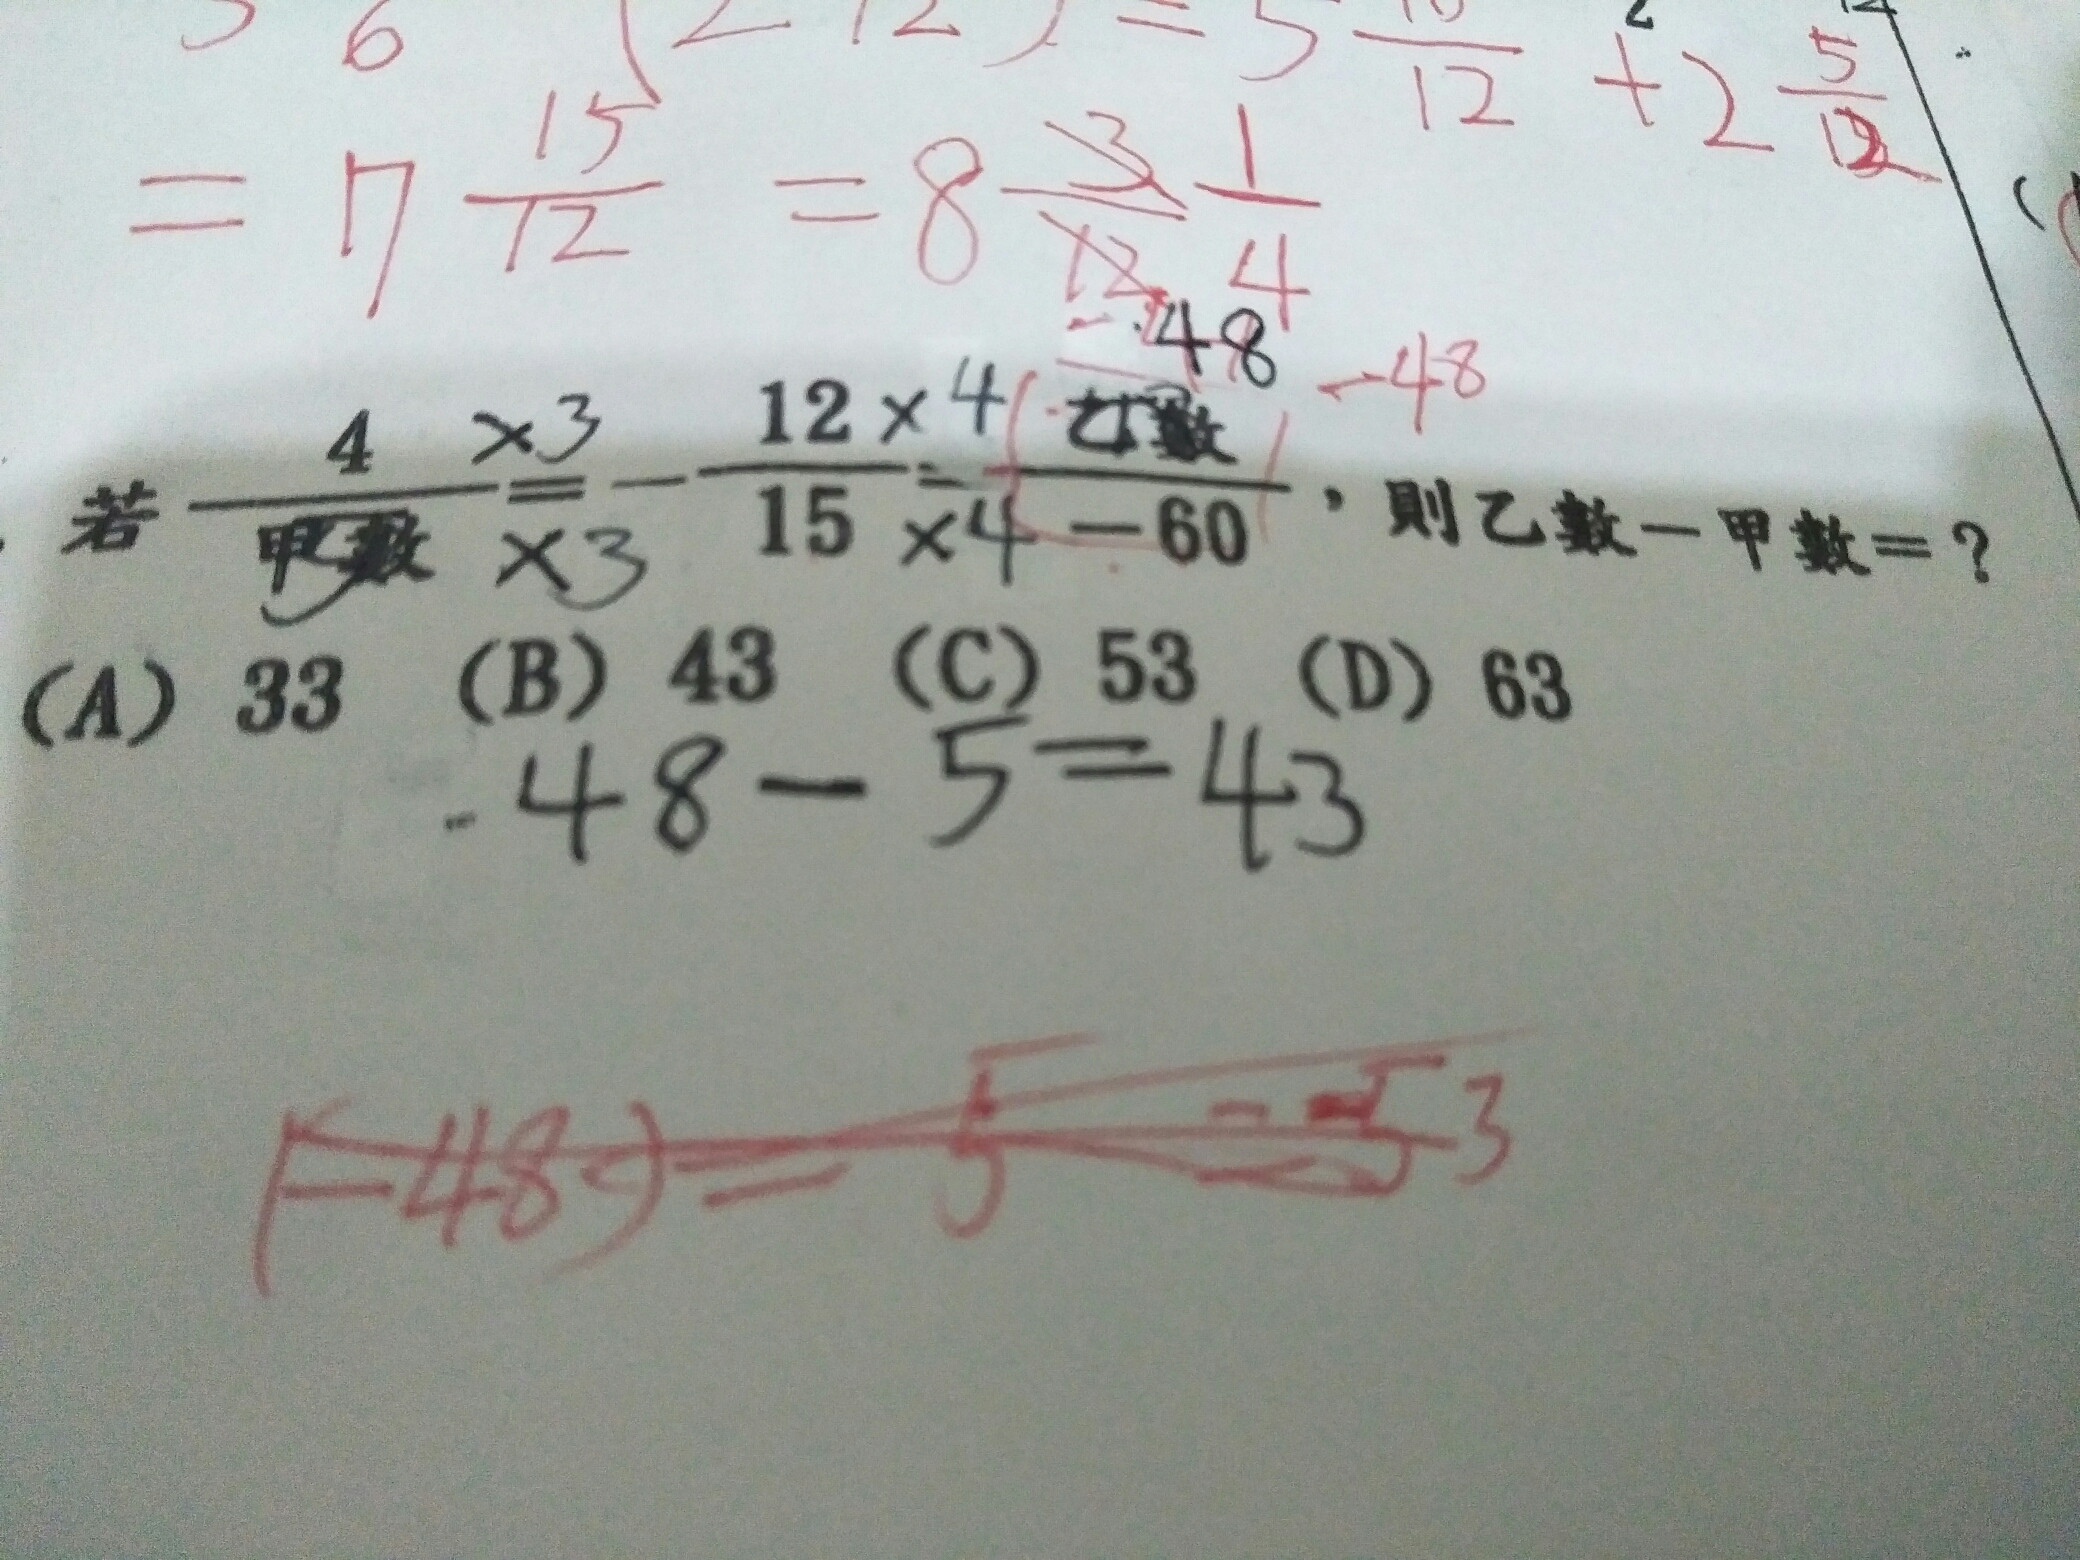 6 (2 12) = 5 10/12 + 2 5/12
= 7 15/12 = 8 3/12 1/4
-48
若 4/甲數 ×3/×3 = - 12/15 ×4/×4 = 乙數/-60 -48 , 則乙數-甲數=?
(A) 33 (B) 43 (C) 53 (D) 63
48 - 5 = 43
(-48) = 5 = -53